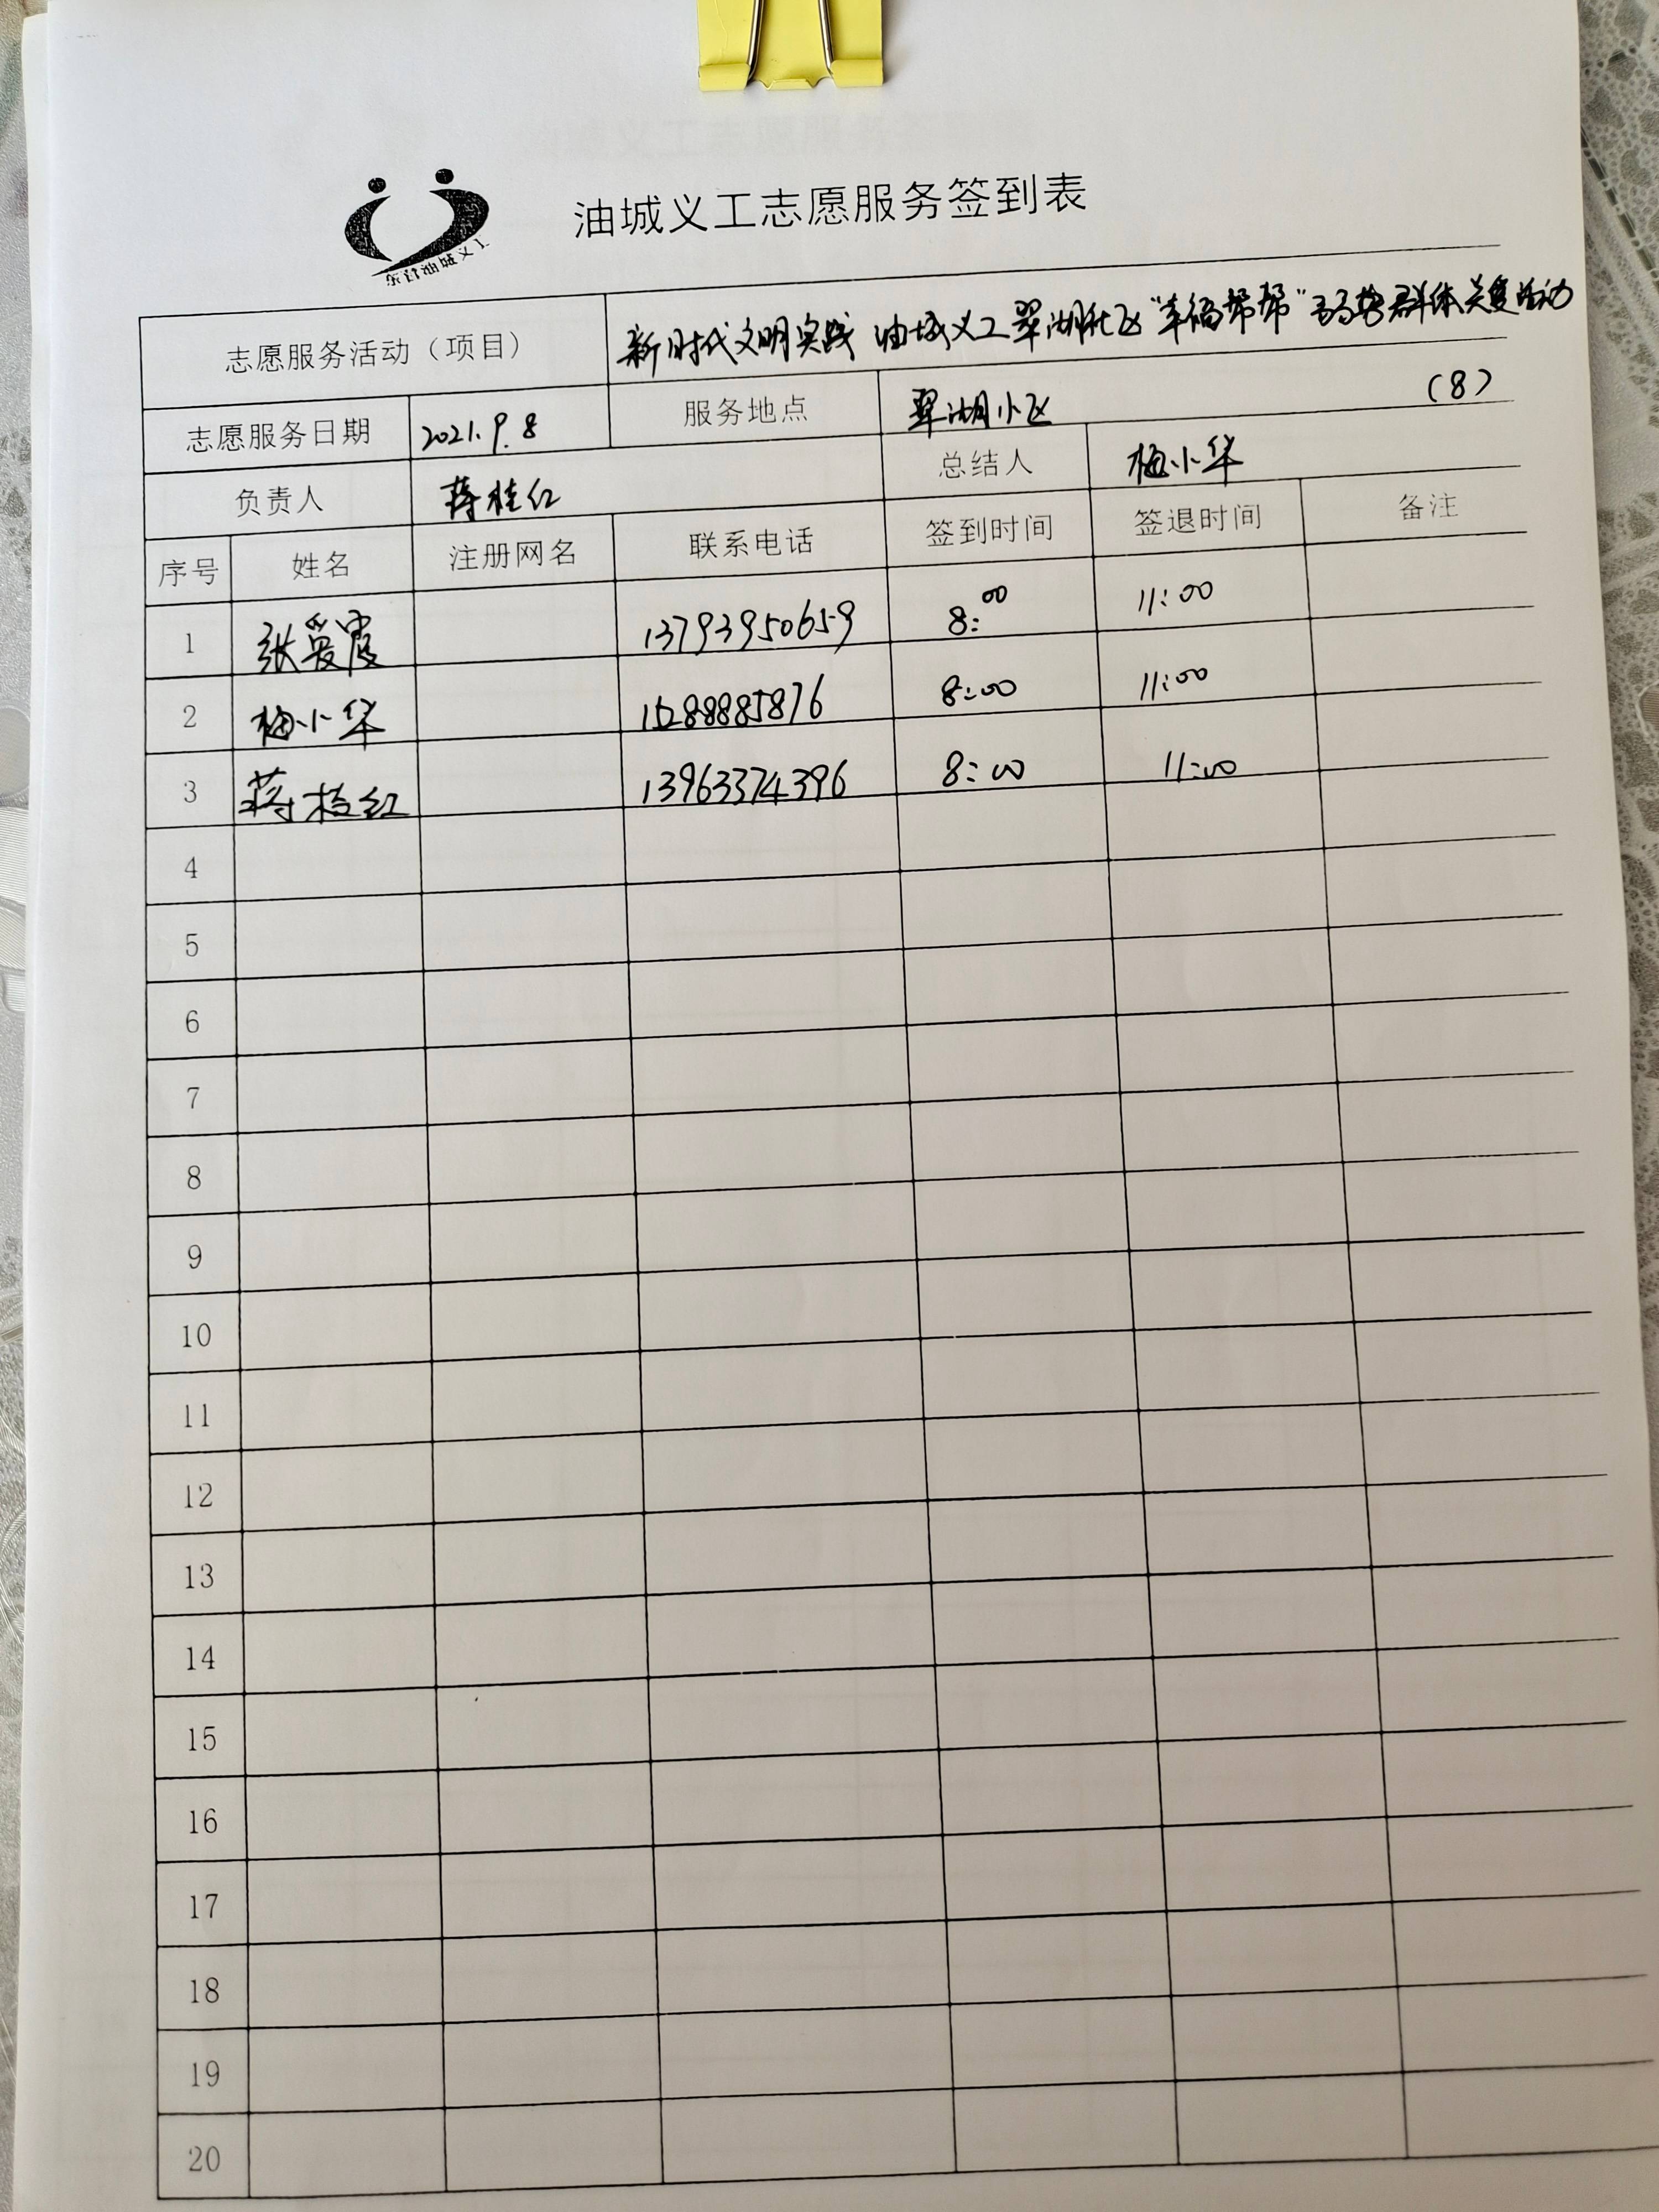 东营油城义工
油城义工志愿服务签到表
志愿服务活动（项目） 新时代文明实践 油城义工翠湖社区“幸福帮帮” 弱势群体关爱活动
志愿服务日期 2021.9.8 服务地点 翠湖小区 (8)
负责人 蒋桂红 总结人 梅小华
序号 姓名 注册网名 联系电话 签到时间 签退时间 备注
1 张爱霞 13793950659 8:00 11:00
2 梅小华 15288885876 8:00 11:00
3 蒋桂红 13963374396 8:00 11:00
4
5
6
7
8
9
10
11
12
13
14
15
16
17
18
19
20